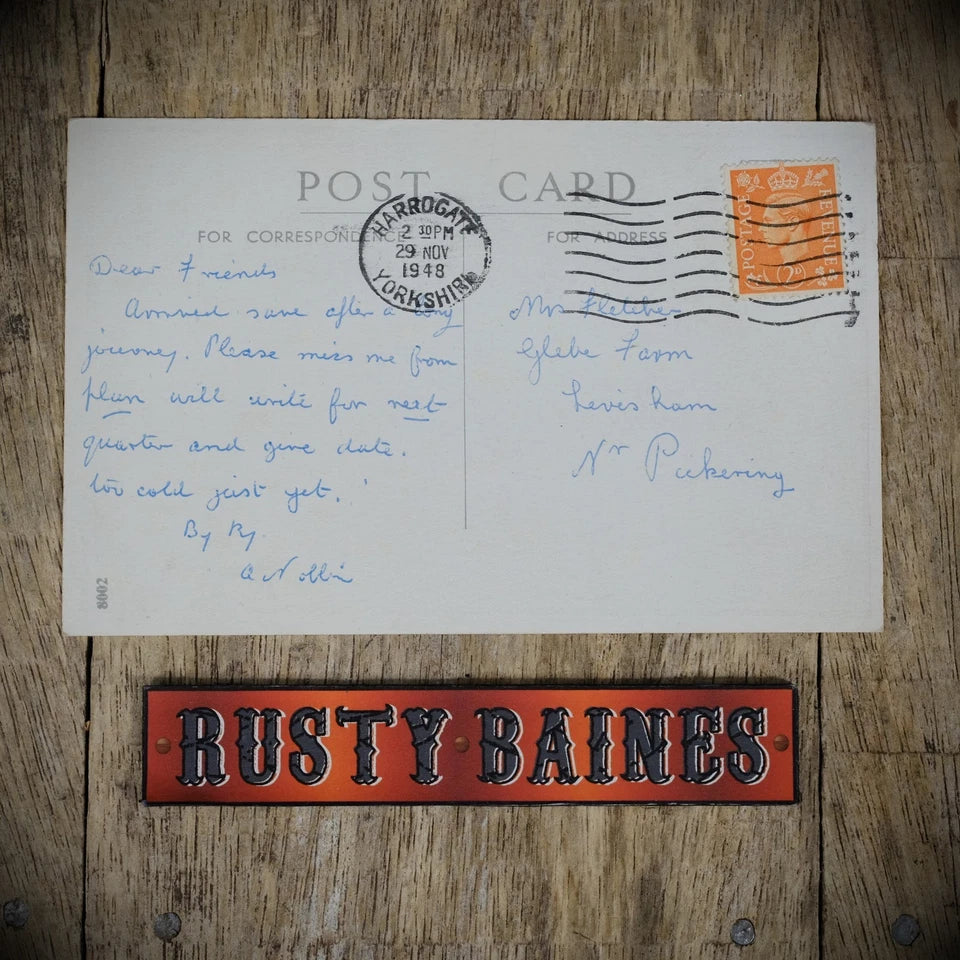 POST CARD
FOR CORRESPONDENCE
FOR ADDRESS
HARROGATE
2 30PM
29 NOV
1948
YORKSHIRE
POSTAGE
REVENUE
2D
Dear Friends
Arrived save after a long
journey. Please miss me from
plan will write for next
quarter and give date.
too cold just yet.
By By.
Mrs Fletcher
Glebe Farm
Levisham
Nr Pickering
8002
RUSTY BAINES